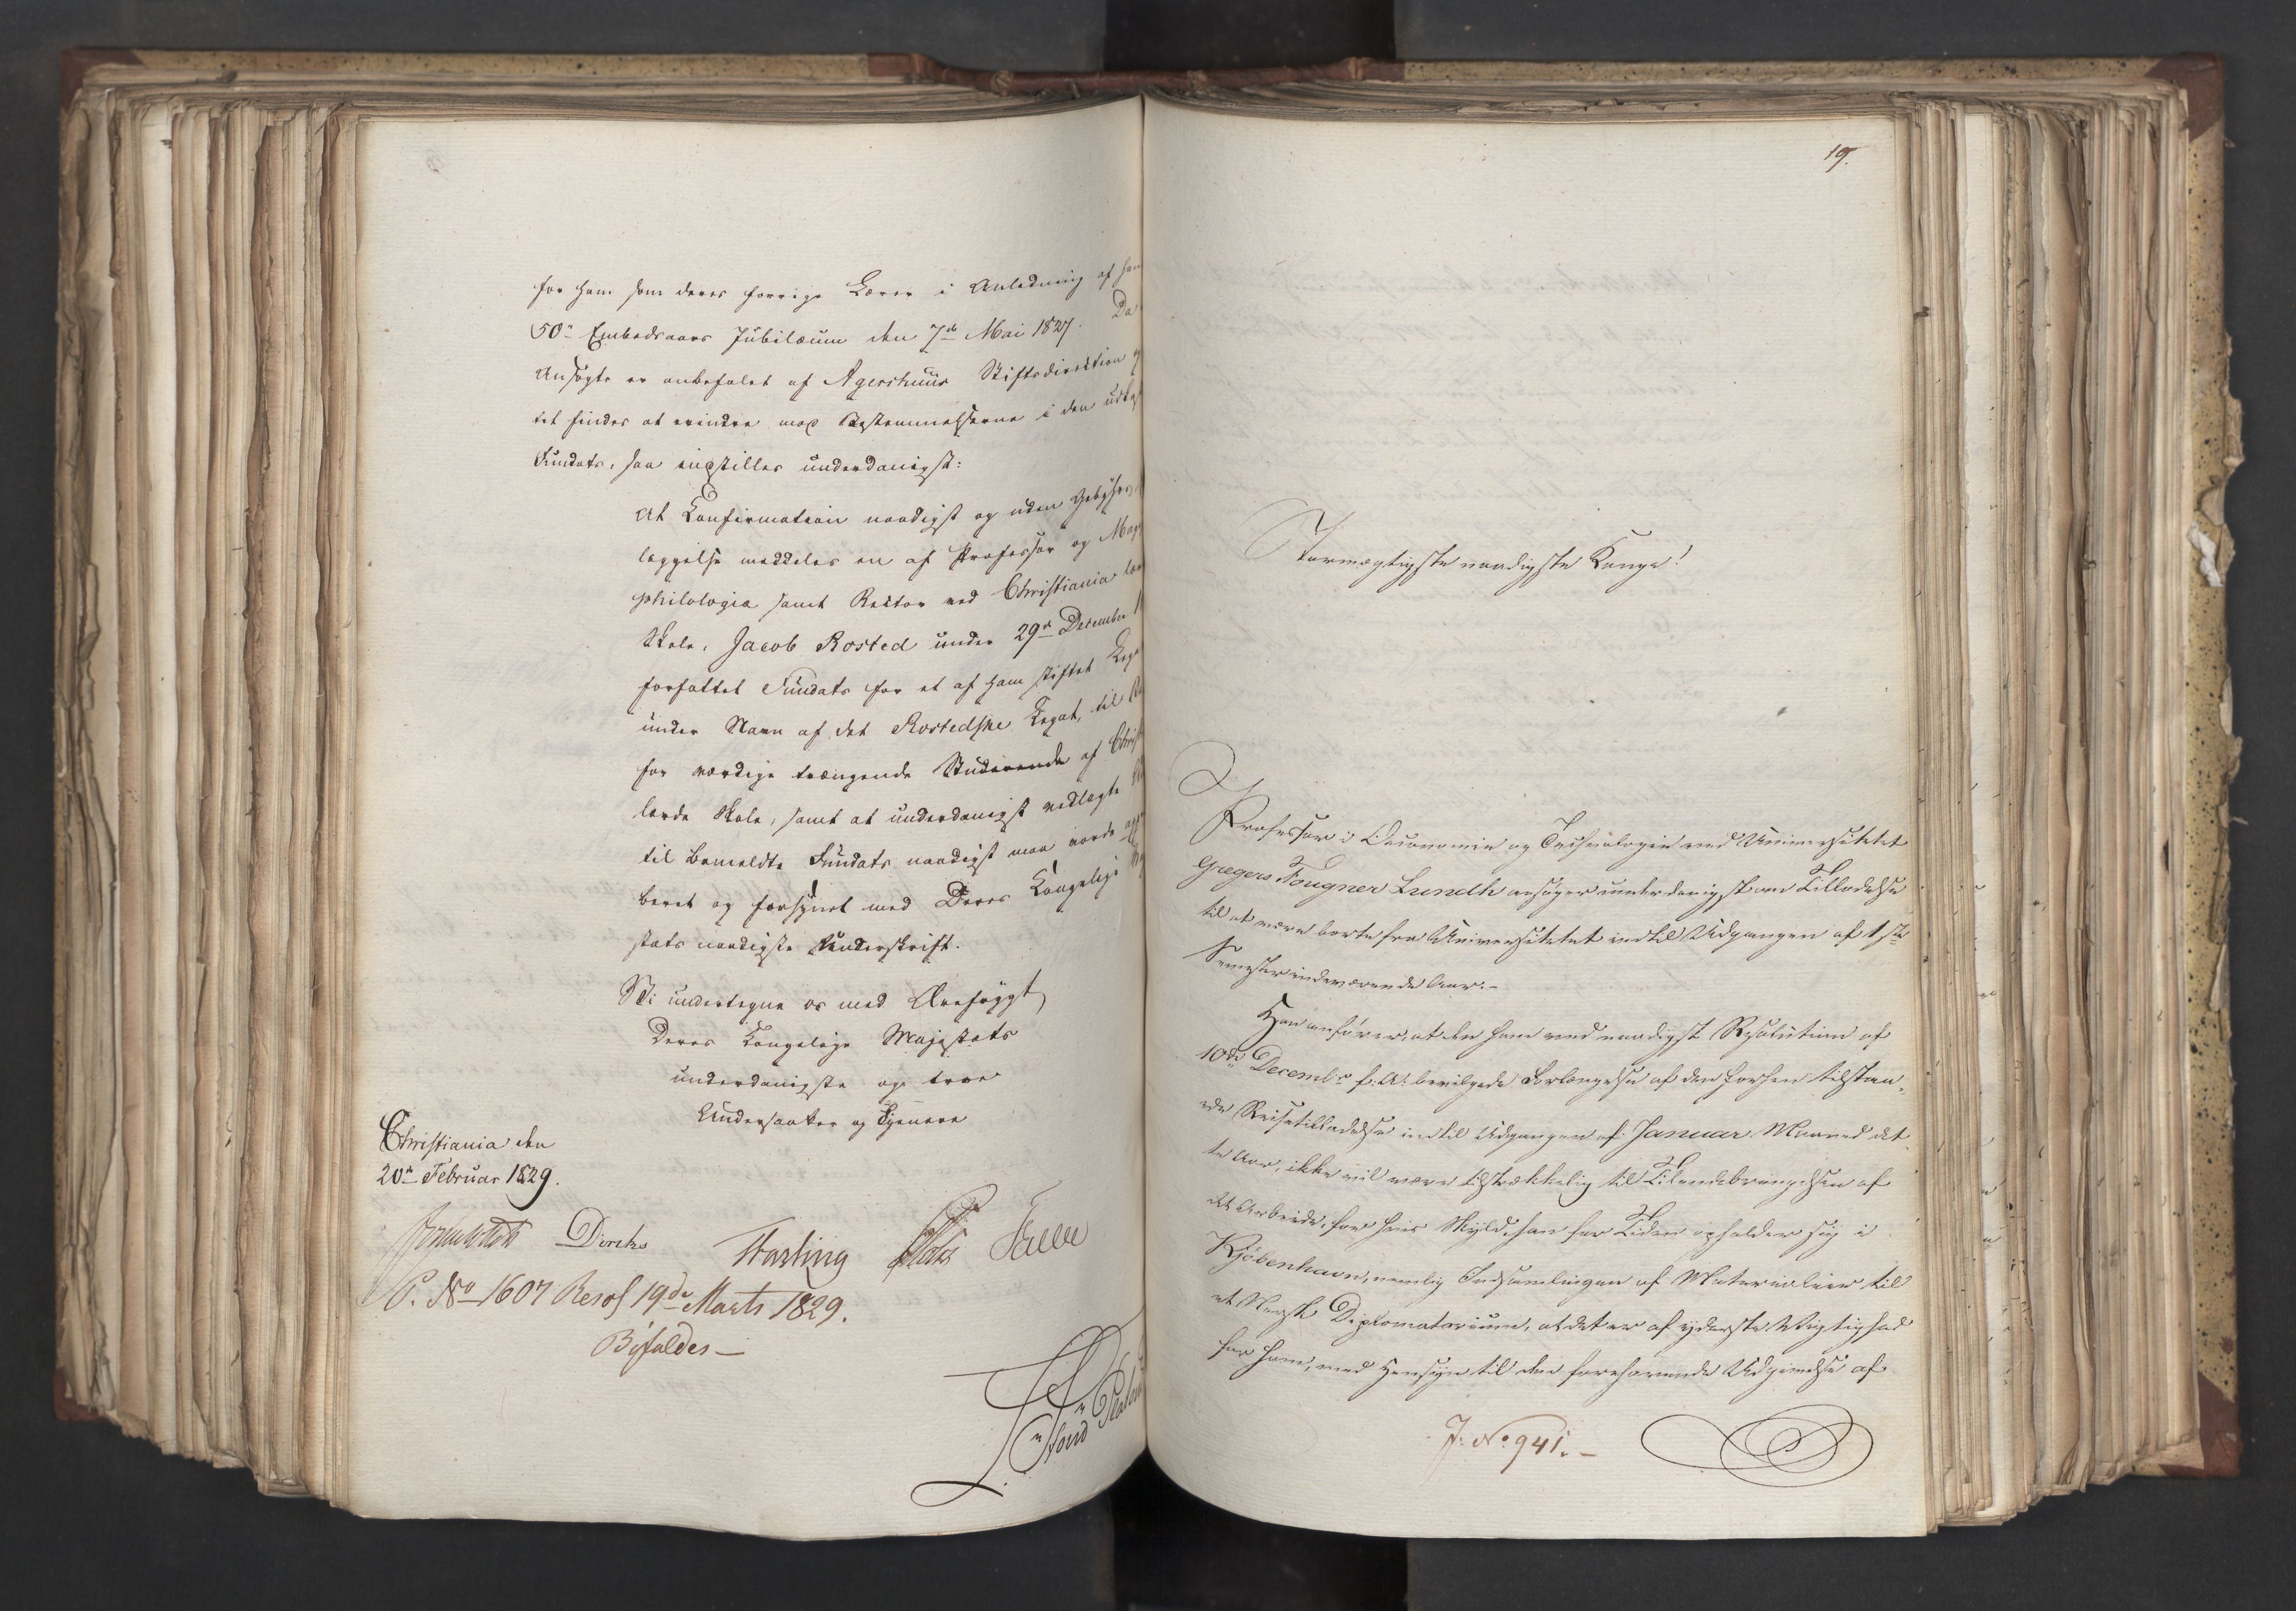 for ham som deres forrige Lærer i Anledning af han
50de Embedsaars Jubilæum den 7de Mai 1827. Da
Ansøgte er anbefalet af Agershuus Stiftsdirection
tet findes at erindre mod Bestemmelserne i den udka
Fundats, saa indstilles underdanigst:
At Confirmation naadigst og uden Gebyhrs
læggelse meddeles en af Professor og Mag
philologiæ samt Rector ved Christiania lær
Skole, Jacob Rosted under 29de December
forfattet Fundats for et af ham stiftet Lega
under Navn af det Rostedske Legat, til
for værdige trængende Studerende af Christ
lærde Skole, samt at underdanigst vedlagte
til bemeldte Fundats naadigst maa vorde
beret og forsynet med Deres Kongelige
stæts naadigste Underskrift.
Vi undertegne os med Ærefrygt
Deres Kongelige Majestæts
underdanigste og troe
Undersaatter og Tjenere
Christiania den
20de Februar 1829.
Diriks
P. No 1607 Resol 19de Marts 1829.
Bifaldes —
19.
Stormægtigste naadigste Konge!
Professor i Oeconomie og Technologien ved Universitetet
Gregers Fougner Lundh ansøger underdanigst om Tilladelse
til at være borte fra Universitetet indtil Udgangen af 1ste
Semester indeværende Aar.-
Han anfører, at den ham ved naadigst Resolution af
10de Decembr f: A: bevilgede Forlængelse af den forhen tilstaa-
ede Reisetilladelse indtil Udgangen af Januar Maaned det-
te Aar, ikke vil være tilstrækkelig til Tilendebringelsen af
det Arbeide, for hvis Skyld han for Tiden opholder sig i
Kjøbenhavn, nemlig Indsamlingen af Materialier til
et Norsk Diplomatarium, at det er af yderste Vigtighed
for ham, med Hensyn til den forehavende Udgivelse af
J: No 941. -